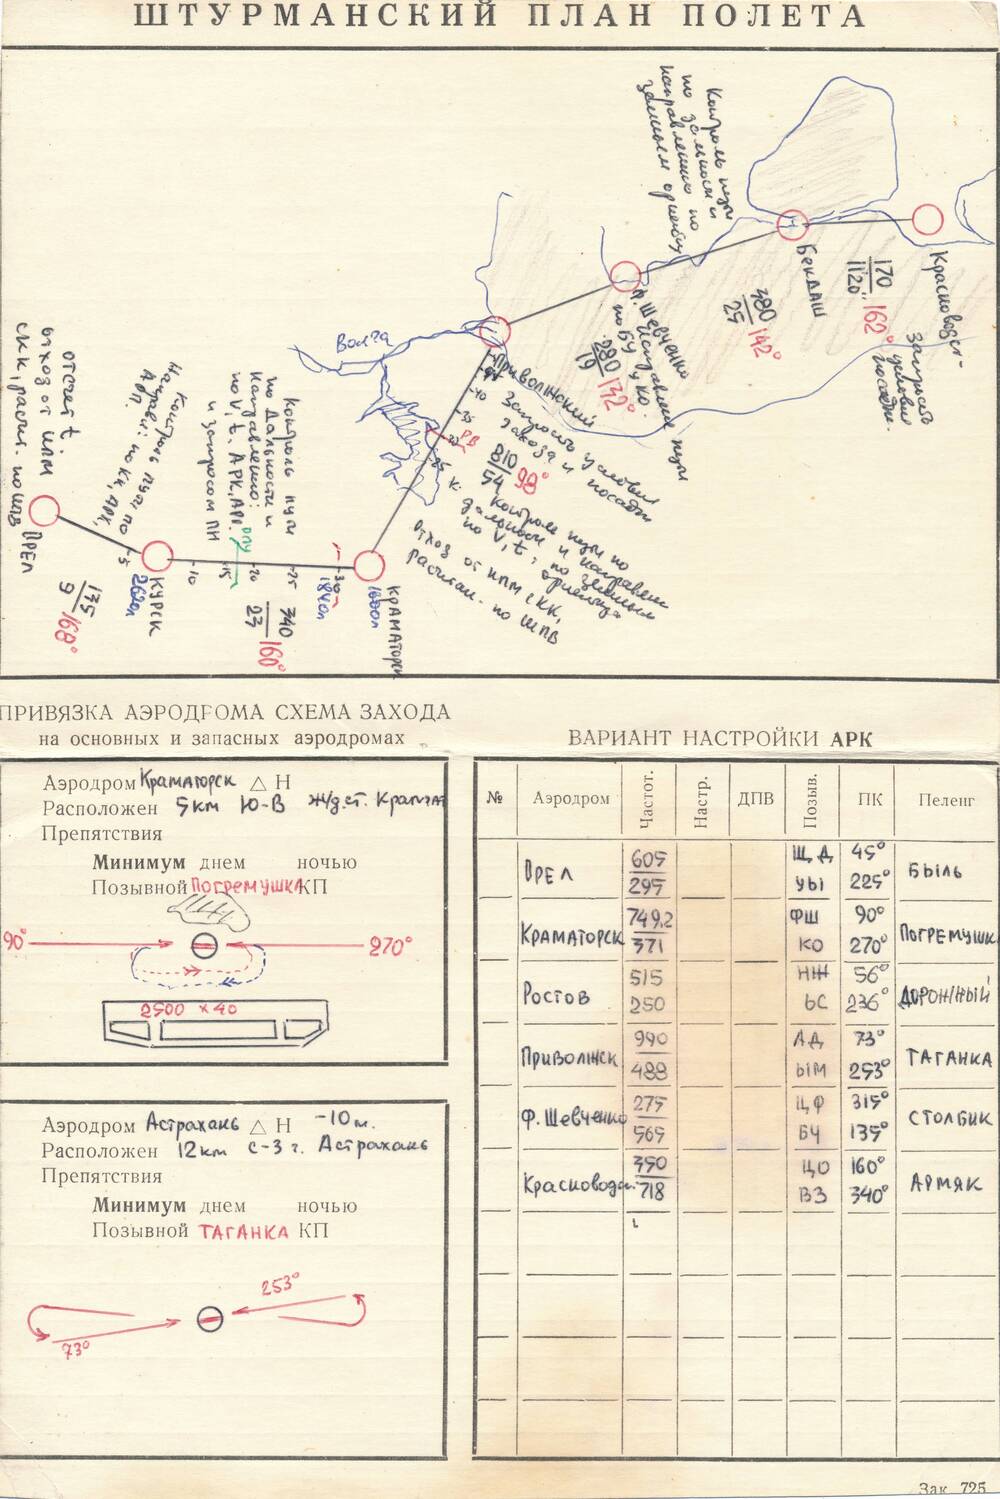 ШТУРМАНСКИЙ ПЛАН ПОЛЕТА
Контроль пути
по дальности и
направлению по
земным ориентир
Красноводск-
Запросить
условия
посадки.
170
1120"
162°
БЕКДАШ
380
25
142°
Ф. Шевченко
Исправление пути
по БУ и КО.
280
19
132°
Приволжский
Запросить условия
захода и посадки
Волга
45
40
35
30
25
РВ
810
54
98°
К.
Контроль пути по
дальности и направлен
по V, t, по земным
ориентирам
Отход от ИПМ с КК,
расчитан. по ШПВ
КРАМАТОРСК
1600л
Контроль пути
по дальности и
направлению:
по V, t. АРК, АРП.
и запросом ПИ
ОПУ
-5
-10
-15
-20
-25
-30
1840л
340
23
160°
КУРСК
2620л
Контроль пути по
Направл: по КК, АРК,
АРП.
135
9
168°
отсчет t.
выход от ИПМ
с КК, расчит. по ШПВ
ОРЕЛ
ПРИВЯЗКА АЭРОДРОМА СХЕМА ЗАХОДА
на основных и запасных аэродромах
Аэродром Краматорск △ Н
Расположен 5км Ю-В ж/д.ст. Крамат
Препятствия
Минимум днем ночью
Позывной ПОГРЕМУШКА КП
90° 270°
2500 × 40
Аэродром Астрахань △ Н -10 м.
Расположен 12км С-З г. Астрахань
Препятствия
Минимум днем ночью
Позывной ТАГАНКА КП
253°
73°
ВАРИАНТ НАСТРОЙКИ АРК
№ Аэродром Частот. Настр. ДПВ Позыв. ПК Пеленг
ОРЕЛ 605 ЩД 45° БЫЛЬ
295 УЫ 225°
КРАМАТОРСК 749,2 ФШ 90° ПОГРЕМУШК
371 КО 270°
Ростов 515 НЖ 56° ДОРОЖНЫЙ
250 ЬС 236°
Приволжск 990 АД 73° ТАГАНКА
488 ЫМ 253°
Ф. Шевченко 275 ЦФ 315° СТОЛБИК
565 БЧ 135°
Красноводск 350 ЦО 160° АРМЯК
718 ВЗ 340°
Зак. 725